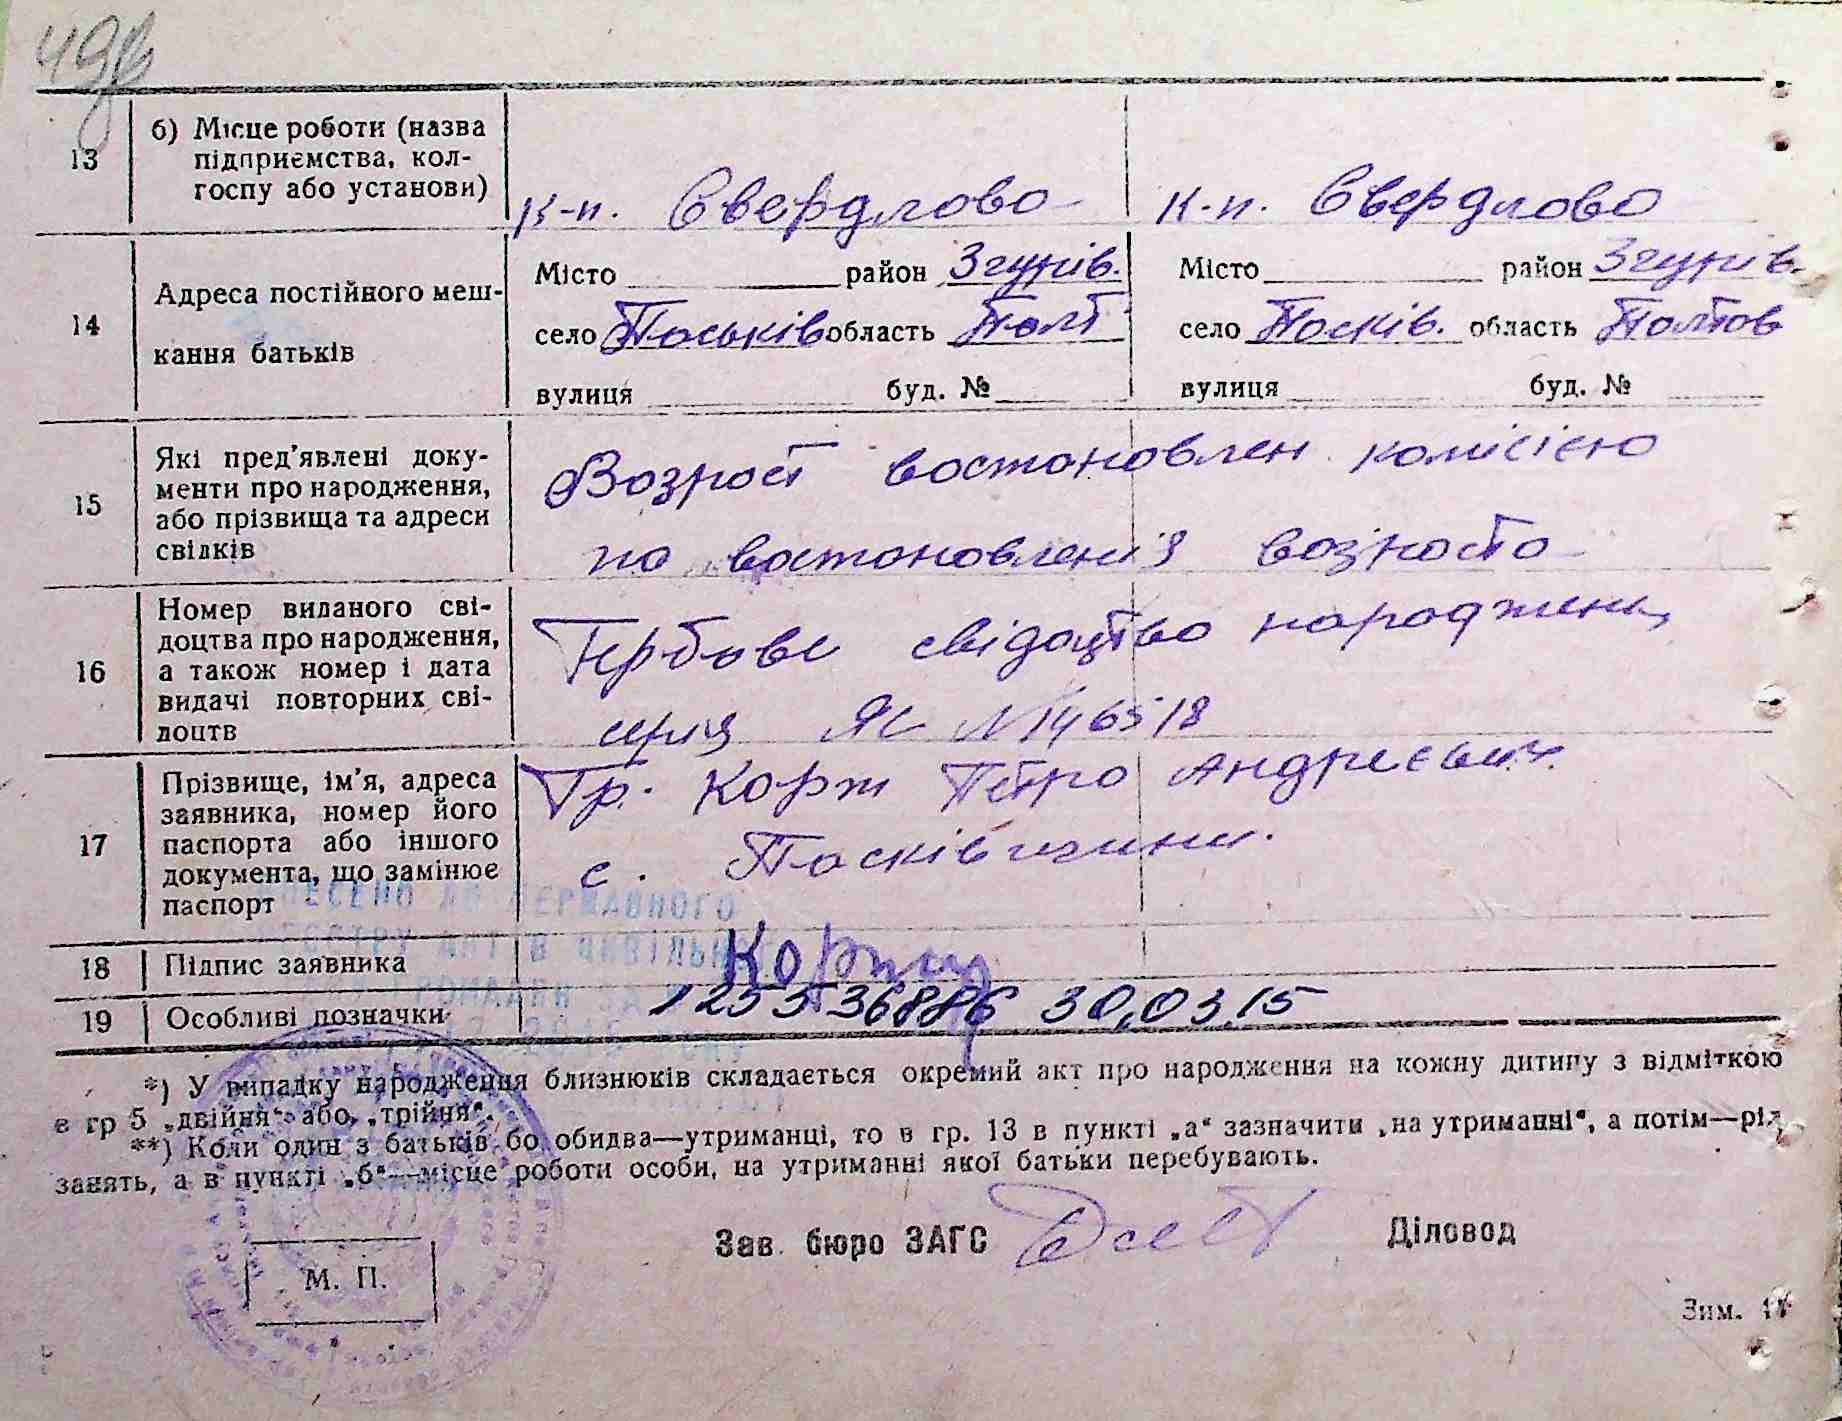 49в
13
б) Місце роботи (назва
підприємства, кол-
госпу або установи)
к-п. Свердлова
к-п. Свердлова
14
Адреса постійного меш-
кання батьків
Місто район Згурів.
село Паськів область Полт
вулиця буд. №
Місто район Згурів.
село Пасків. область Полтов
вулиця буд. №
15
Які пред’явлені доку-
менти про народження,
або прізвища та адреси
свідків
Возрост востоновлен комісією
по востоновленія возроста
16
Номер виданого сві-
доцтва про народження,
а також номер і дата
видачі повторних сві-
доцтв
Гербове свідоцтво народжень
серія ЯС №146518
17
Прізвище, ім’я, адреса
заявника, номер його
паспорта або іншого
документа, що замінює
паспорт
Гр. Корж Петро Андреевич
с. Пасківщини.
18
Підпис заявника
Корж
19
Особливі позначки
1255 36886 30,03.15
*) У випадку народження близнюків складається окремий акт про народження на кожну дитину з відміткою
в гр 5 „двійня“ або „трійня“.
**) Коли один з батьків бо обидва—утриманці, то в гр. 13 в пункті „а“ зазначити „на утриманні“, а потім—рід
занять, а в пункті „б“—місце роботи особи, на утриманні якої батьки перебувають.
Зав. бюро ЗАГС
Діловод
М. П.
Зим.